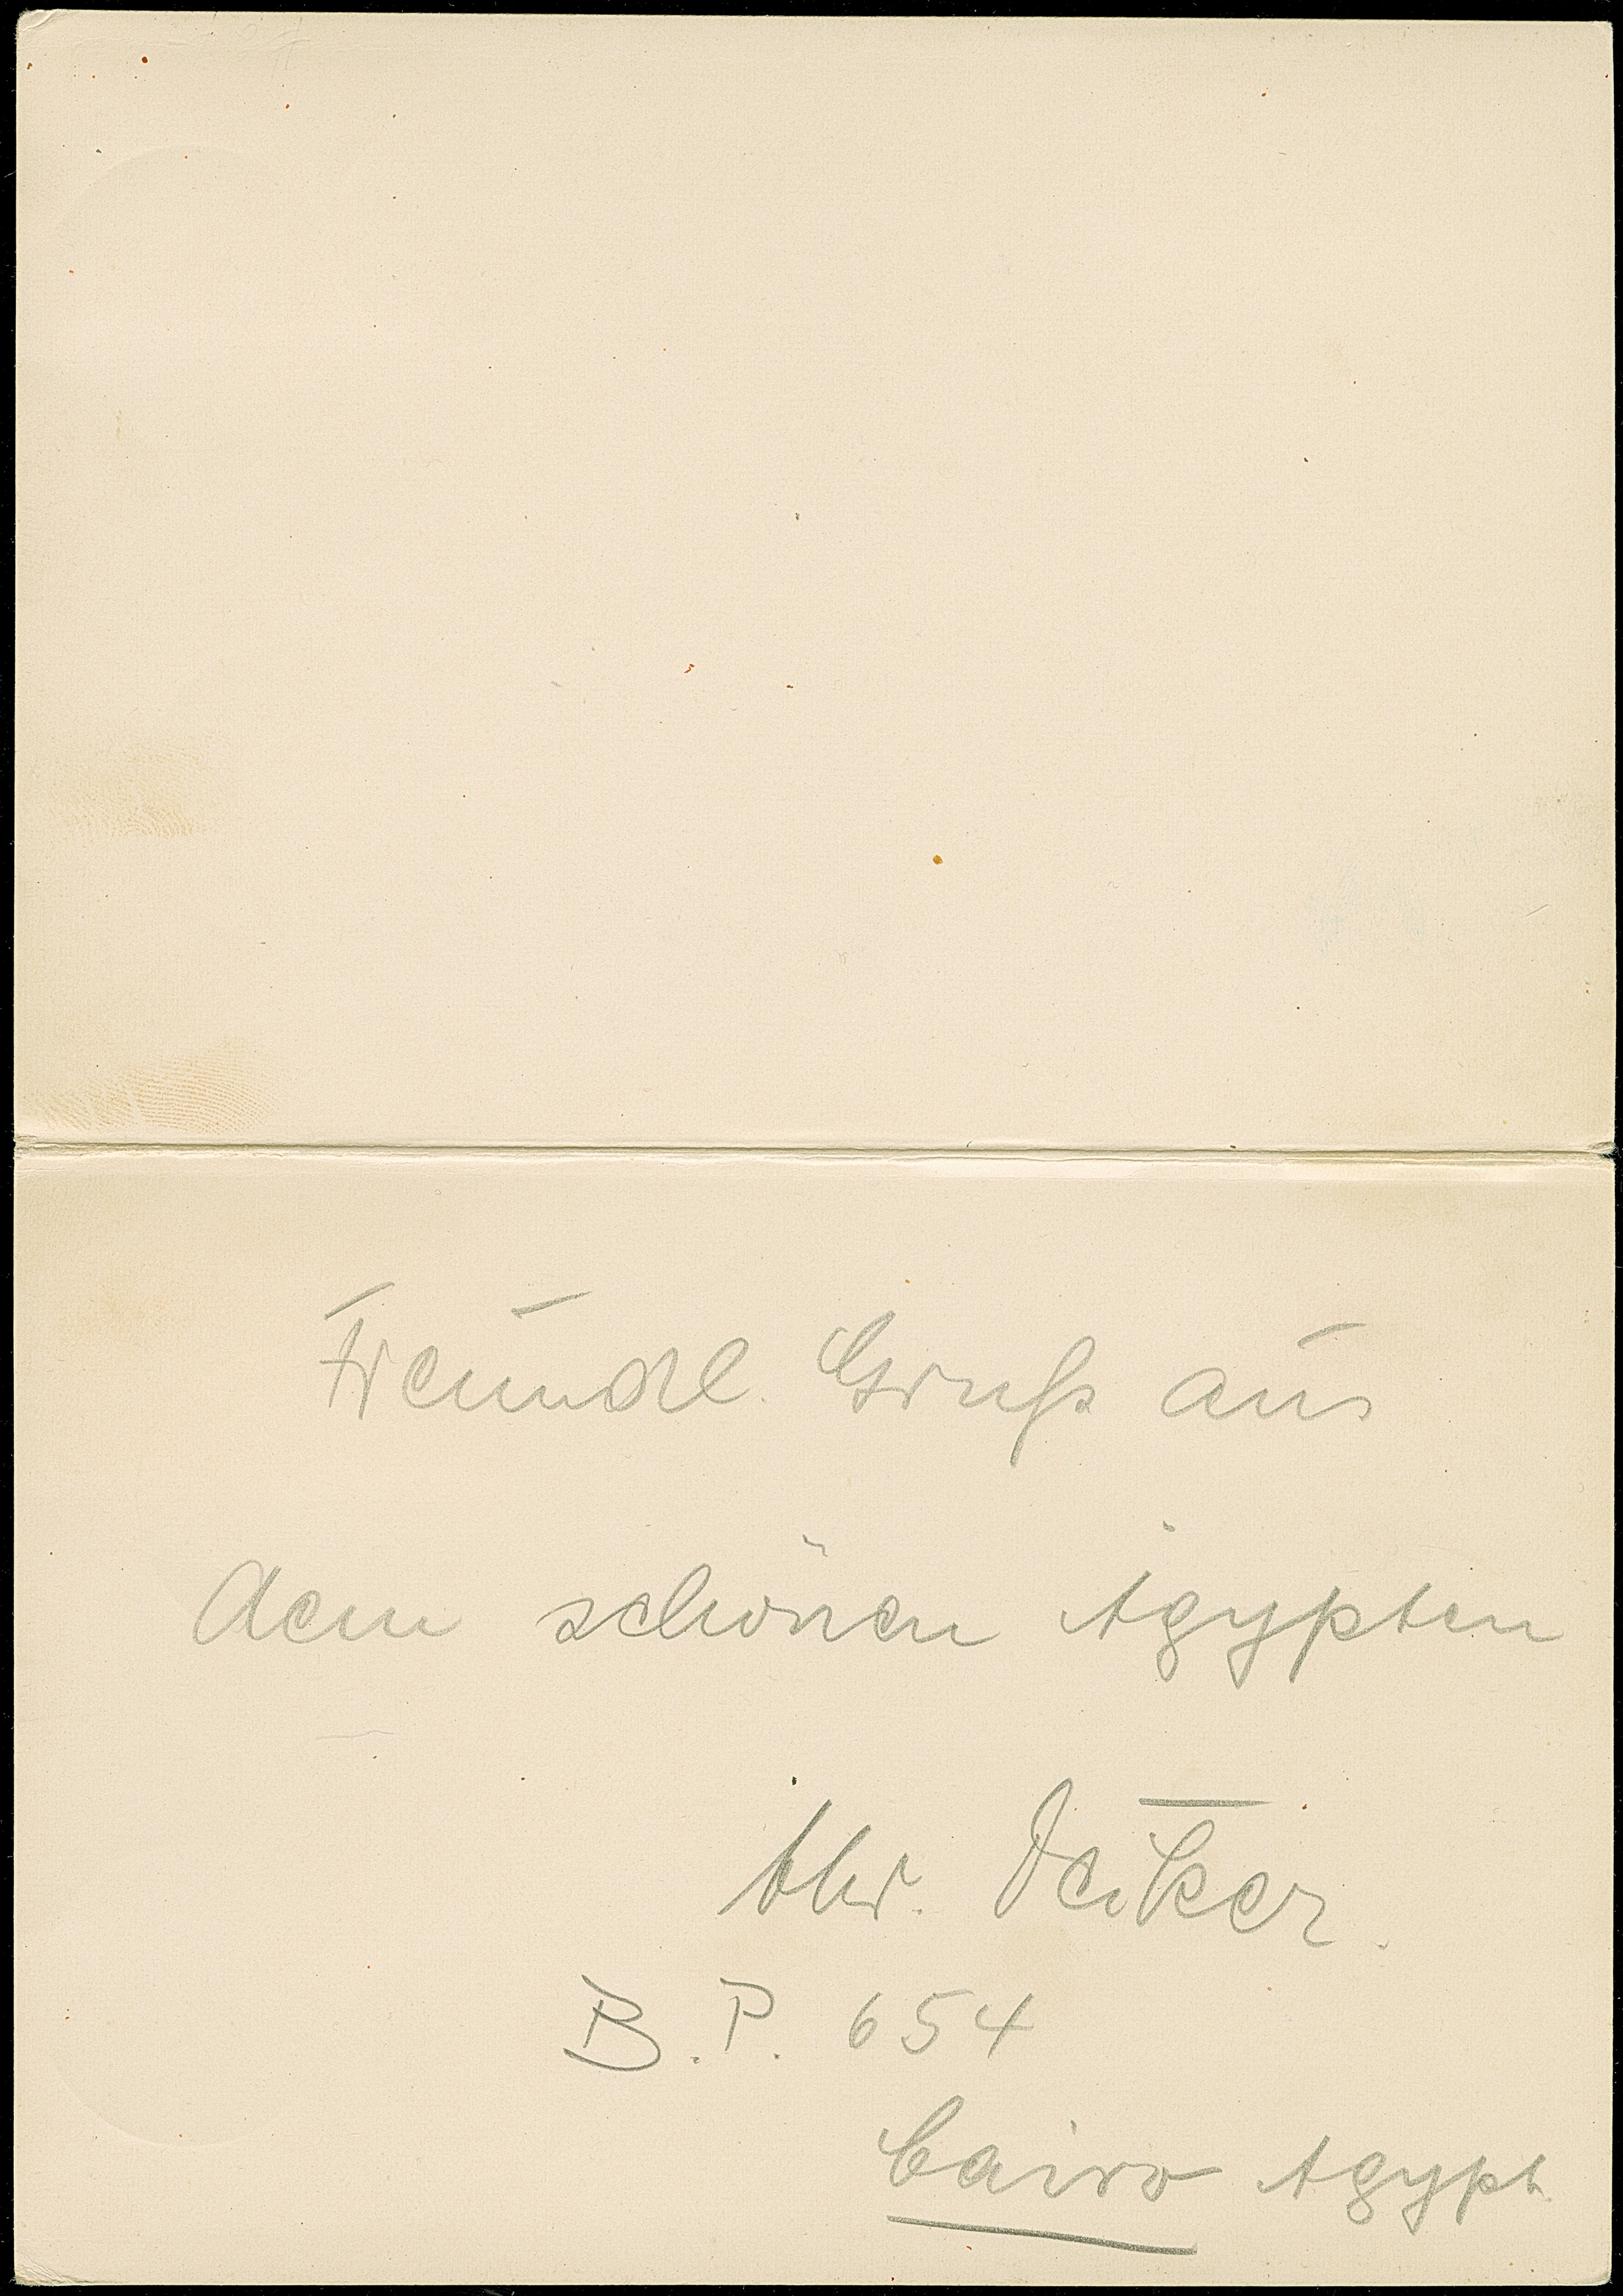 Freundl. Gruß aus
dem schönen Ägypten
B. P. 654
Cairo Ägypt.